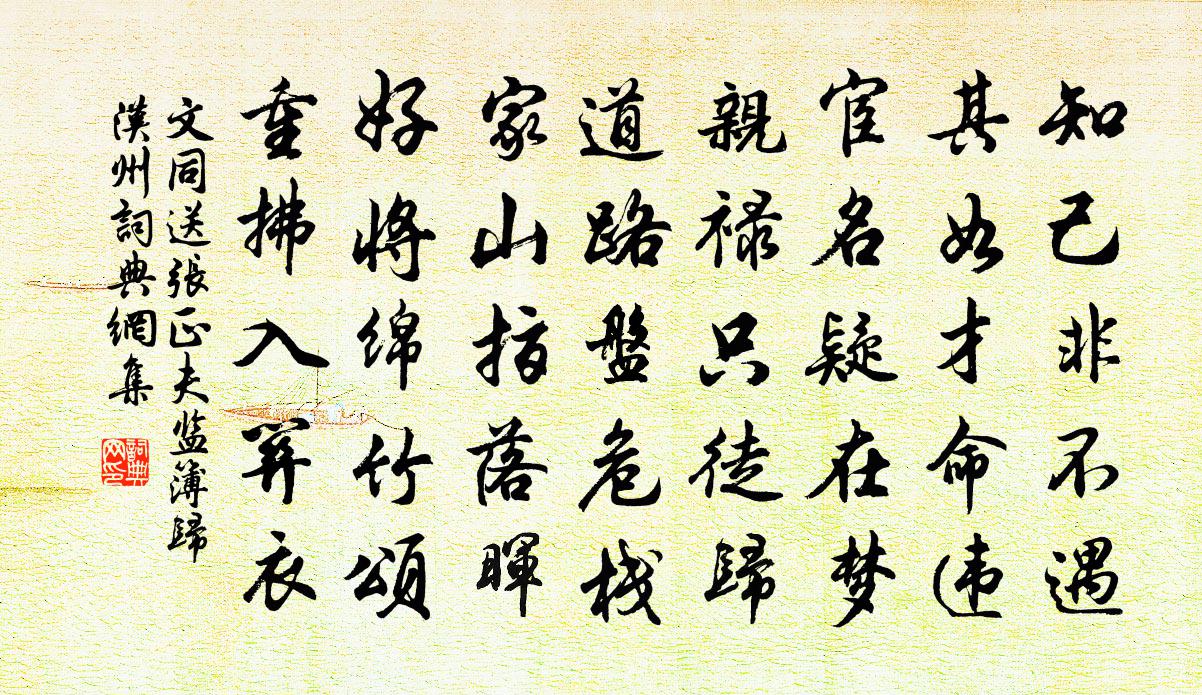 知己非不遇
其如才命违
宦名疑在梦
親禄只徒歸
道路盤危栈
家山指落暉
好将绵竹頌
重拂入關衣
文同送張正夫监簿歸
漢州詞典網集
詞典网印